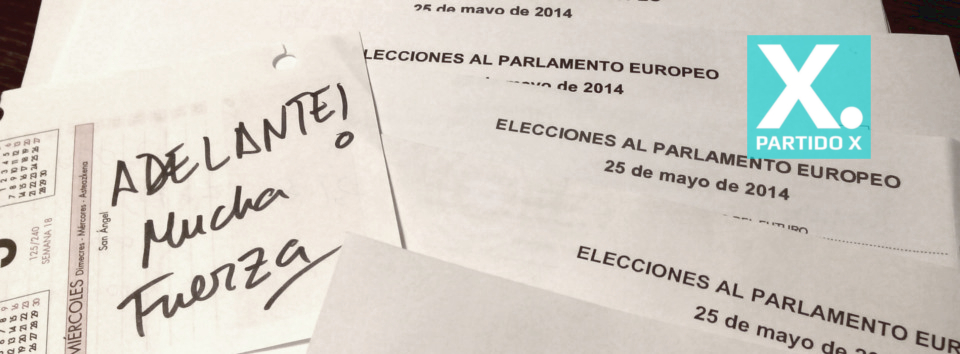 25 de mayo de 2014
ELECCIONES AL PARLAMENTO EUROPEO
de 2014
ELECCIONES AL PARLAMENTO EUROPEO
25 de mayo de 2014
FUTURO
ELECCIONES AL PARLAMENTO EUR
25 de mayo de
X.
PARTIDO X
ADELANTE!
Mucha
Fuerza
San Ángel
MIÉRCOLES Dimecres - Mércores - Asteazkena
125/240
SEMANA 18